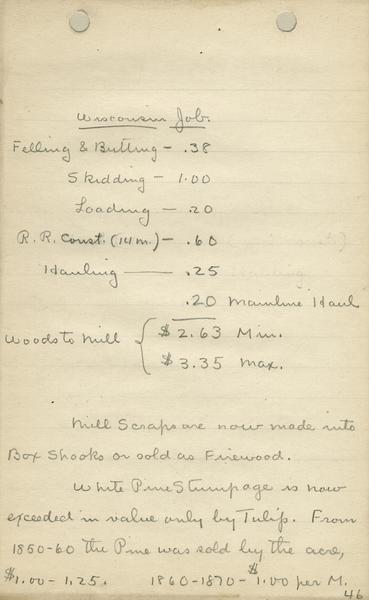 Wisconsin Job.
Felling & Butting - .38
Skidding - 1.00
Loading - .20
R.R. Const. (14 m.) - .60
Hauling - .25
.20 Mainline Haul
Woods to Mill { $2.63 Min.
$3.35 Max.
Mill Scraps are now made into
Box Shooks or sold as Firewood.
White Pine Stumpage is now
exceeded in value only by Tulip. From
1850-60 the Pine was sold by the acre,
$1.00 - 1.25. 1860-1870 - $1.00 per M.
46